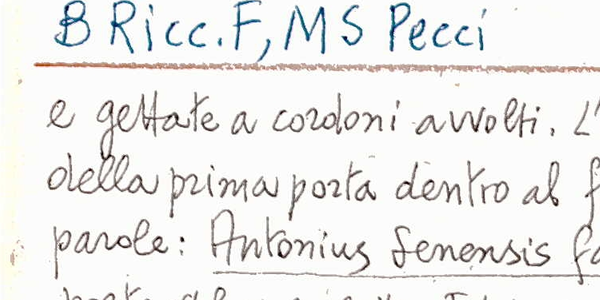 B Ricc. F, MS Pecci
e gettate a cordoni avvolti. L'
della prima porta dentro al
parole: Antonius Senensis